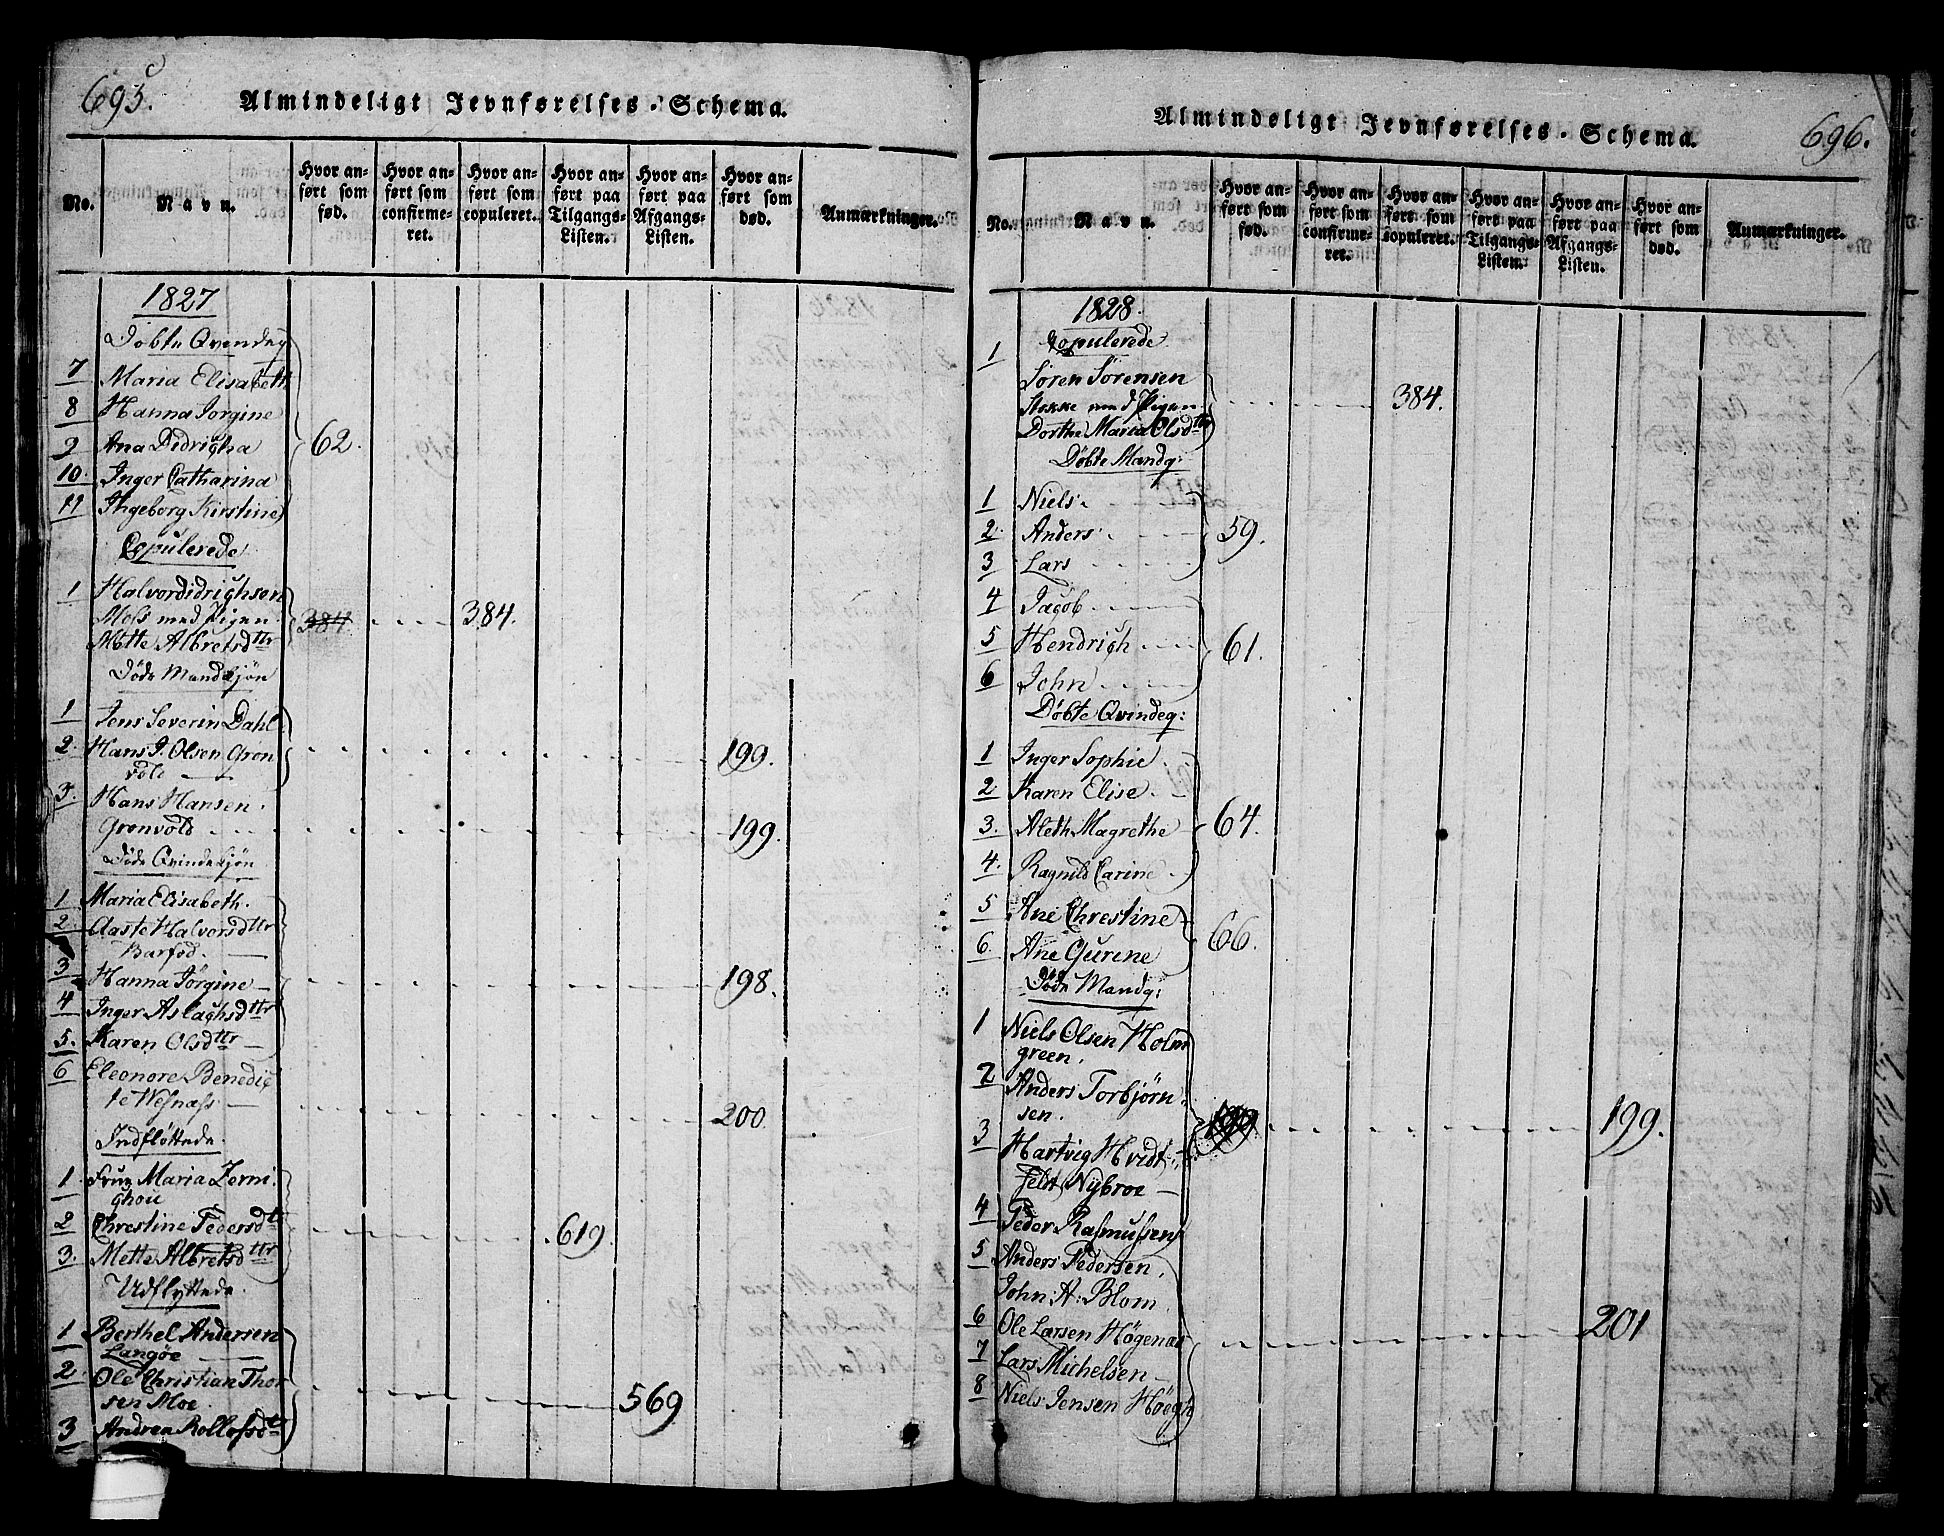 695.
Almindeligt Jevnførelses-Schema.
No.
Navn.
Hvor anført som fød.
Hvor anført som confirmeret.
Hvor anført som copuleret.
Hvor anført paa Tilgangs-Listen.
Hvor anført paa Afgangs-Listen.
Hvor anført som død.
Anmærkninger.
1827
Døbte Qvindeg
7 Maria Elisabeth
8 Hanna Jorgine
9 Ana Didrigha 62.
10. Inger Catharina
11 Ingeborg Kirstine
Copulerede
1 Halvor didrighsen
Moss med Pigen 384. 384.
Mette Albretsdttr
Døde Mandkjøn
1 Jens Severin Dahl
2. Hans J. Olsen Gron
vold 199.
3. Hans Hansen.
Gronvold 199.
Døde Qvindekjøn
1 Maria Elisabeth.
2 Aaste Halvorsdttr
Barfod.
3 Hanna Jørgine 198.
4 Inger Aslaghsdttr
5. Karen Olsdttr
6 Eleonore Benedig
te Wesnæss 200
Indfløttede.
1 Frue Maria Zerni
ghou
2 Chrestine Pedersdt 619.
3. Mette Albretsdttr
Udflyttede.
1 Berthel Andersen
Langøe
2. Ole Christian Thor
sen Moe. 569
3 Andrea Rollofsdt
Almindeligt Jevnførelses-Schema.
696.
No.
Navn.
Hvor anført som fød.
Hvor anført som confirmeret.
Hvor anført som copuleret.
Hvor anført paa Tilgangs-Listen.
Hvor anført paa Afgangs-Listen.
Hvor anført som død.
Anmærkninger.
1828.
1 Copulerede.
Søren Sørensen
Stokke med Pigen 384.
Dorthe Maria Olsdttr
Døbte Mandg:
1 Niels.
2. Anders 59.
3 Lars
4 Jagob
5 Hendrigh 61.
6 John
Døbte Qvindeg:
1 Inger Sophie
2 Karen Elise
3. Aleth Magrethe 64.
4. Ragnild Carine
5 Ane Chrestine
6. Ane Gurene 66.
Døde Mandg:
1 Niels Olsen Holm
green.
2 Anders Torbjørn
sen. 199 199.
3 Hartvig Hvidt
feldt Nybroe
4 Peder Rasmussen
5 Anders Pedersen.
John: A: Blom
6 Ole Larsen Høgenas 201
7 Lars Michelsen
8 Niels Jensen Höegh